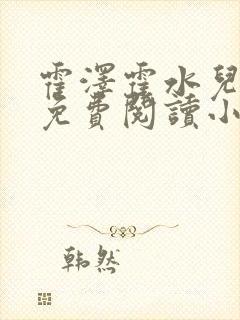 霍澤霍水兒
免費閱讀小
韩然